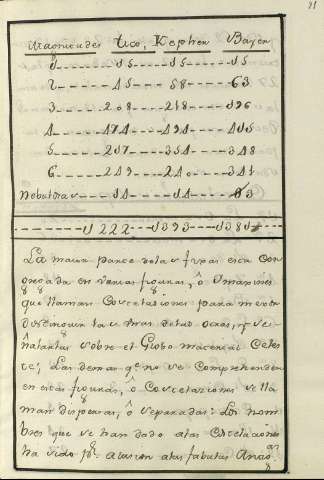 Magnitudes Tico, Kepler Bayer
1 ---- 15 ---- 15 ---- 15
2 ---- 45 ---- 58 ---- 63
3 ---- 208 ---- 218 ---- 196
4 ---- 474 ---- 494 ---- 415
5 ---- 217 ---- 354 ---- 348
6 ---- 249 ---- 240 ---- 341
Nebulosas ---- 14 ---- 14 ----
---- 1222 ---- 1393 ----
La maior parte de las fixas esta con
gregada en varias figuras, ô Imagines
que llaman Constelaziones para mejor
distinguir las unas de las otras, y se
ñalarlas sobre el Globo material Celes
te; Las demas qe. no se comprehenden
en estas figuras, ô Constelaziones se lla
man dispersas, ô separadas: Los nom
bres que se han dado a las Constelaciones
ha sido pr. alusion a las fabulas